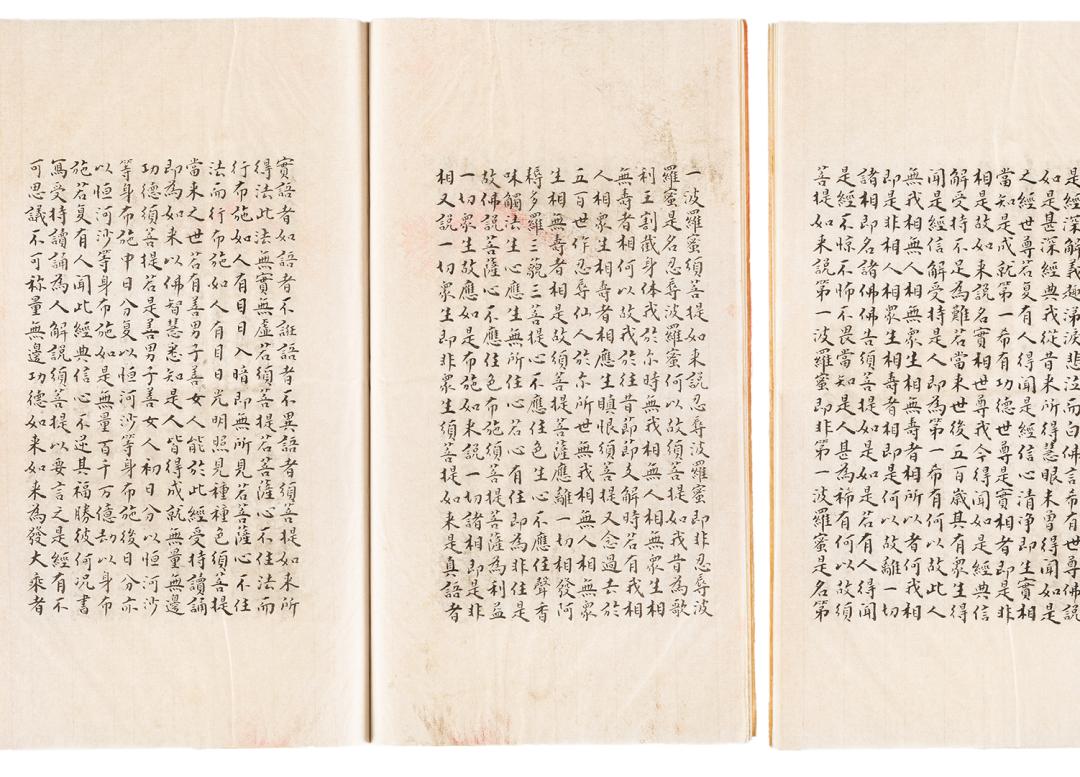 是經深解義趣涕淚悲泣而白佛言希有世尊佛說
如是甚深經典我從昔来所得慧眼未曽得聞如是
之經世尊若复有人得聞是經信心清淨即生實相
當知是成就第一希有功德世尊是實相者即是非
相是故如来説名實相世尊我今得聞如是經典信
解受持不足為難若當来世後五百歲其有衆生得
聞是經信解受持是人即為第一希有何以故此人
無我相無人相無衆生相無壽者相所以者何我相
即是非相人相衆生相壽者相即是非相何以故離一切
諸相即名諸佛佛告須菩提如是如是若有人得聞
是經不惊不怖不畏當知是人甚為稀有何以故須
菩提如来説第一波羅蜜即非第一波羅蜜是名第
一波羅蜜須菩提如来説忍辱波羅蜜即非忍辱波
羅蜜是名忍辱波羅蜜何以故須菩提如我昔為歌
利王割截身体我於尒時無我相無人相無衆生相
無壽者相何以故我於往昔節節支解時若有我相
人相衆生相壽者相應生瞋恨須菩提又念過去於
五百世作忍辱仙人於尒所世無我相無人相無衆
生相無壽者相是故須菩提菩薩應離一切相發阿
耨多羅三藐三菩提心不應住色生心不應住聲香
味觸法生心應生無所住心若心有住即為非住是
故佛説菩薩心不應住色布施須菩提菩薩為利益
一切衆生故應如是布施如来説一切諸相即是非
相又説一切衆生即非衆生須菩提如来是真語者
實語者如語者不誑語者不異語者須菩提如来所
得法此法無實無虛若須菩提若菩薩心不住法而
行布施如人有目日入暗即無所見若菩薩心不住
法而行布施如人有目日光明照見種種色須菩提
當来之世若有善男子善女人能於此經受持讀誦
即為如来以佛智慧悉知是人皆得成就無量無邊
功德須菩提若是善男子善女人初日分以恒河沙
等身布施中日分复以恒河沙等身布施後日分亦
以恒河沙等身布施如是無量百千万億劫以身布
施若复有人聞此經典信心不逆其福勝彼何况書
寫受持讀誦為人解説須菩提以要言之是經有不
可思議不可称量無邊功德如来如来為發大乘者